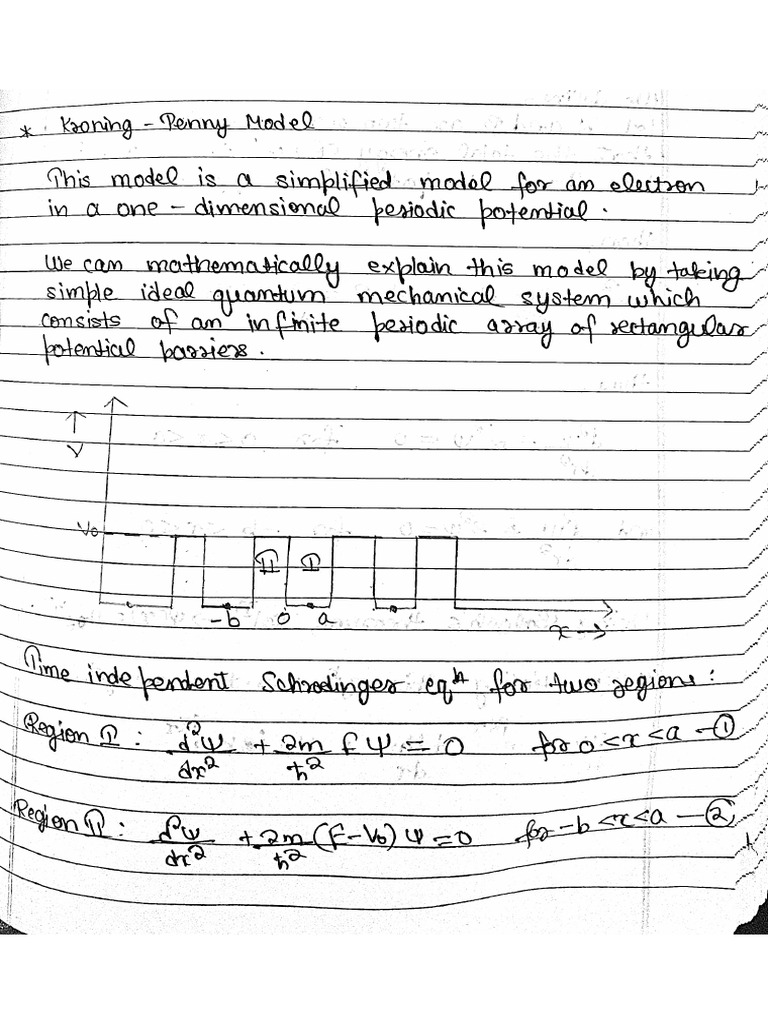 * Kroning - Penny Model
This model is a simplified model for an electron
in a one - dimensional periodic potential.
We can mathematically explain this model by taking
simple ideal quantum mechanical system which
consists of an infinite periodic array of rectangular
potential barriers.
↑
V
V₀
II I
-b 0 a
x →
Time independent Schrodinger eqⁿ for two regions:
Region I : d²ψ/dx² + 2m/ħ² E ψ = 0 for 0 < x < a - ①
Region II : d²ψ/dx² + 2m/ħ² (E - V₀) ψ = 0 for -b < x < a - ②